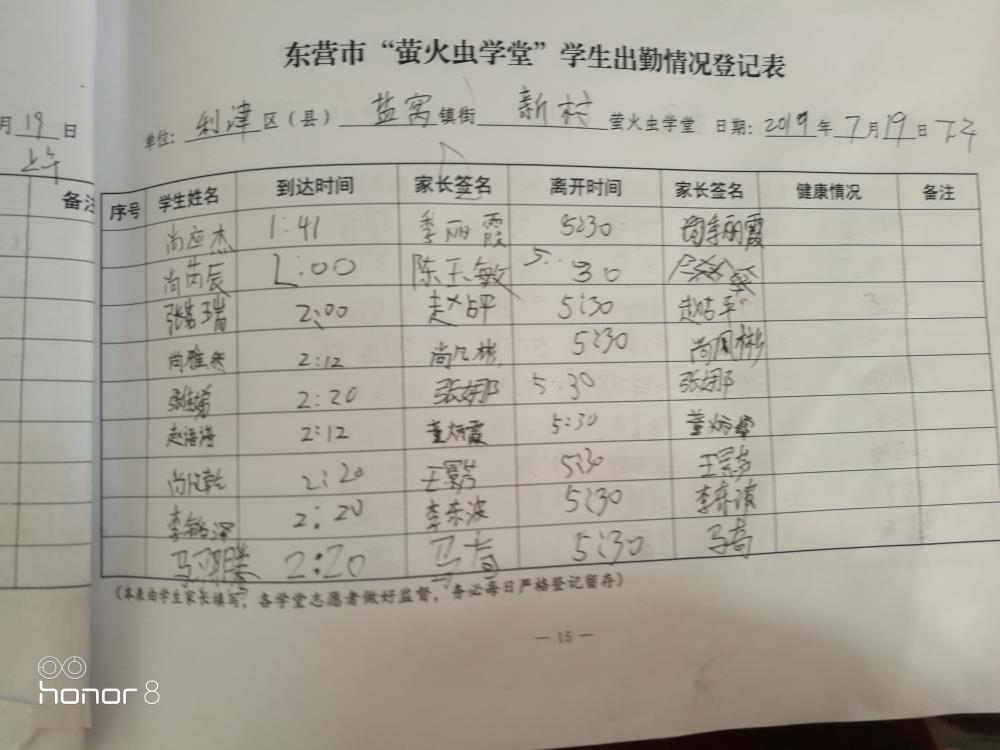 东营市“萤火虫学堂”学生出勤情况登记表
月19日
上午
备注
单位: 利津区(县) 盐窝镇街 新村 萤火虫学堂 日期: 2019年7月19日 下午
序号 学生姓名 到达时间 家长签名 离开时间 家长签名 健康情况 备注
尚应杰 1:41 季丽霞 5:30 季丽霞
尚芮辰 2:00 陈玉敏 5:30
2:00 5:30
尚雅 2:12 尚凡彬 5:30 尚凤彬
2:20 张娜 5:30 张娜
赵浩海 2:12 董炳霞 5:30 董炳霞
尚凡乾 2:20 5:30
李 泽 2:20 李东波 5:30 李东波
马 2:20 马青 5:30
(本表由学生家长填写,各学堂志愿者做好监督,务必每日严格登记留存)
— 15 —
honor 8